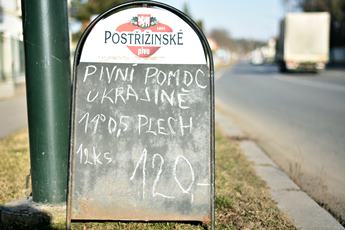 POSTŘIŽINSKÉ
pivo
PIVNÍ POMOC
UKRAJINĚ
11° 0,5 PLECH
12 KS 120,-